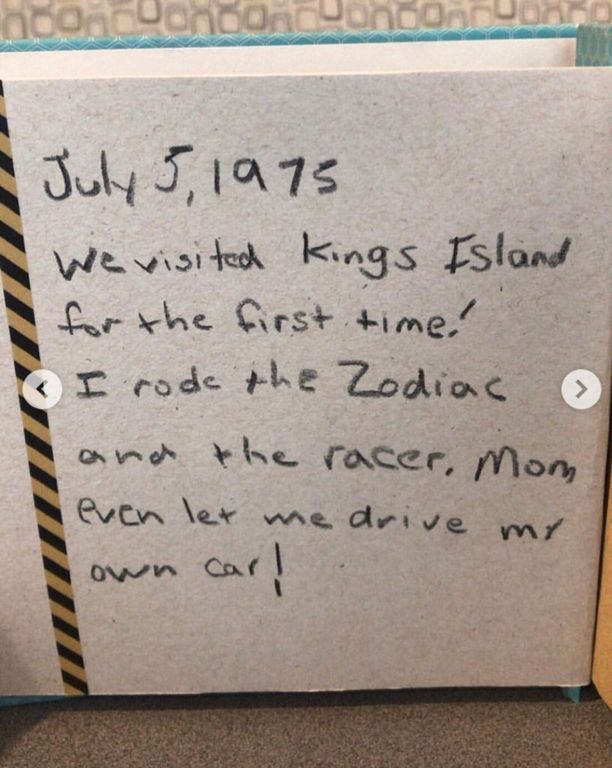 July 5, 1975
We visited Kings Island
for the first time!
I rode the Zodiac
and the racer. Mom
even let me drive my
own car!